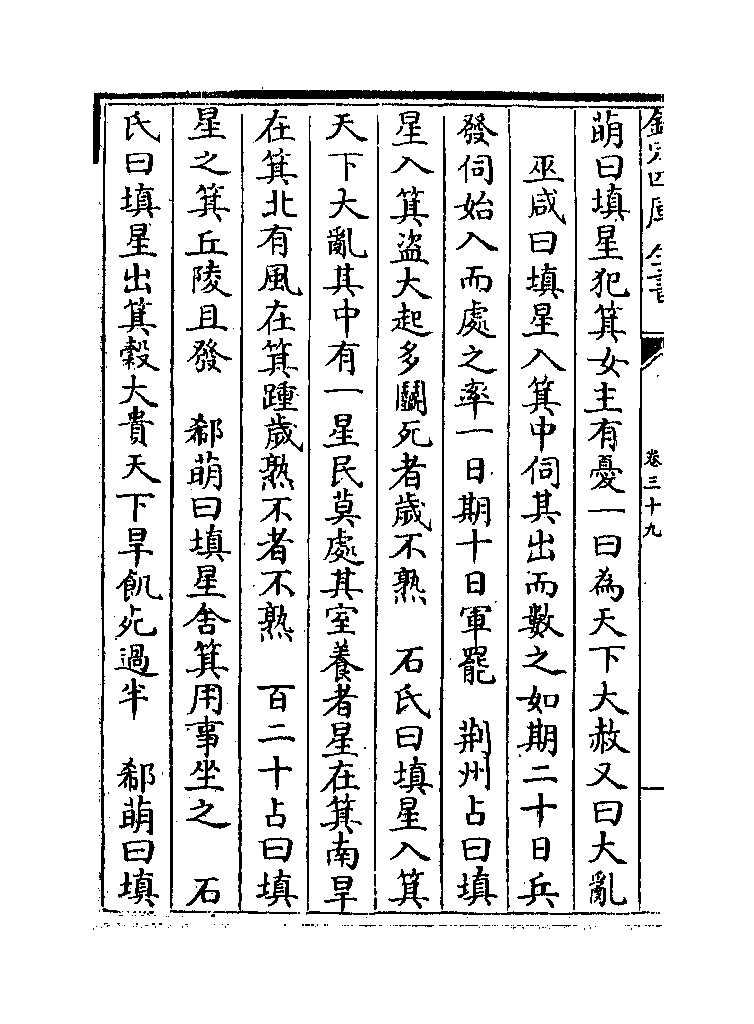 欽定四庫全書
卷三十九
萌曰填星犯箕女主有憂一曰為天下大赦又曰大亂
巫咸曰填星入箕中伺其出而數之如期二十日兵
發伺始入而處之率一日期十日軍罷　荆州占曰填
星入箕盗大起多鬬死者歲不熟　石氏曰填星入箕
天下大亂其中有一星民莫處其室養者星在箕南旱
在箕北有風在箕踵歲熟不者不熟　百二十占曰填
星之箕丘陵且發　郗萌曰填星舍箕用事坐之　石
氏曰填星出箕穀大貴天下旱飢死過半　郗萌曰填